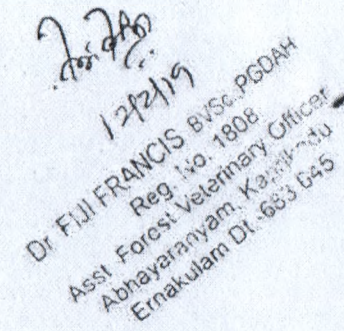 12/2/19
Dr FIJI FRANCIS BVSc.,PGDAH
Reg. No. 1808
Asst. Forest Veterinary Officer
Abhayaranyam, Kaprikadu
Ernakulam Dt.-683 645